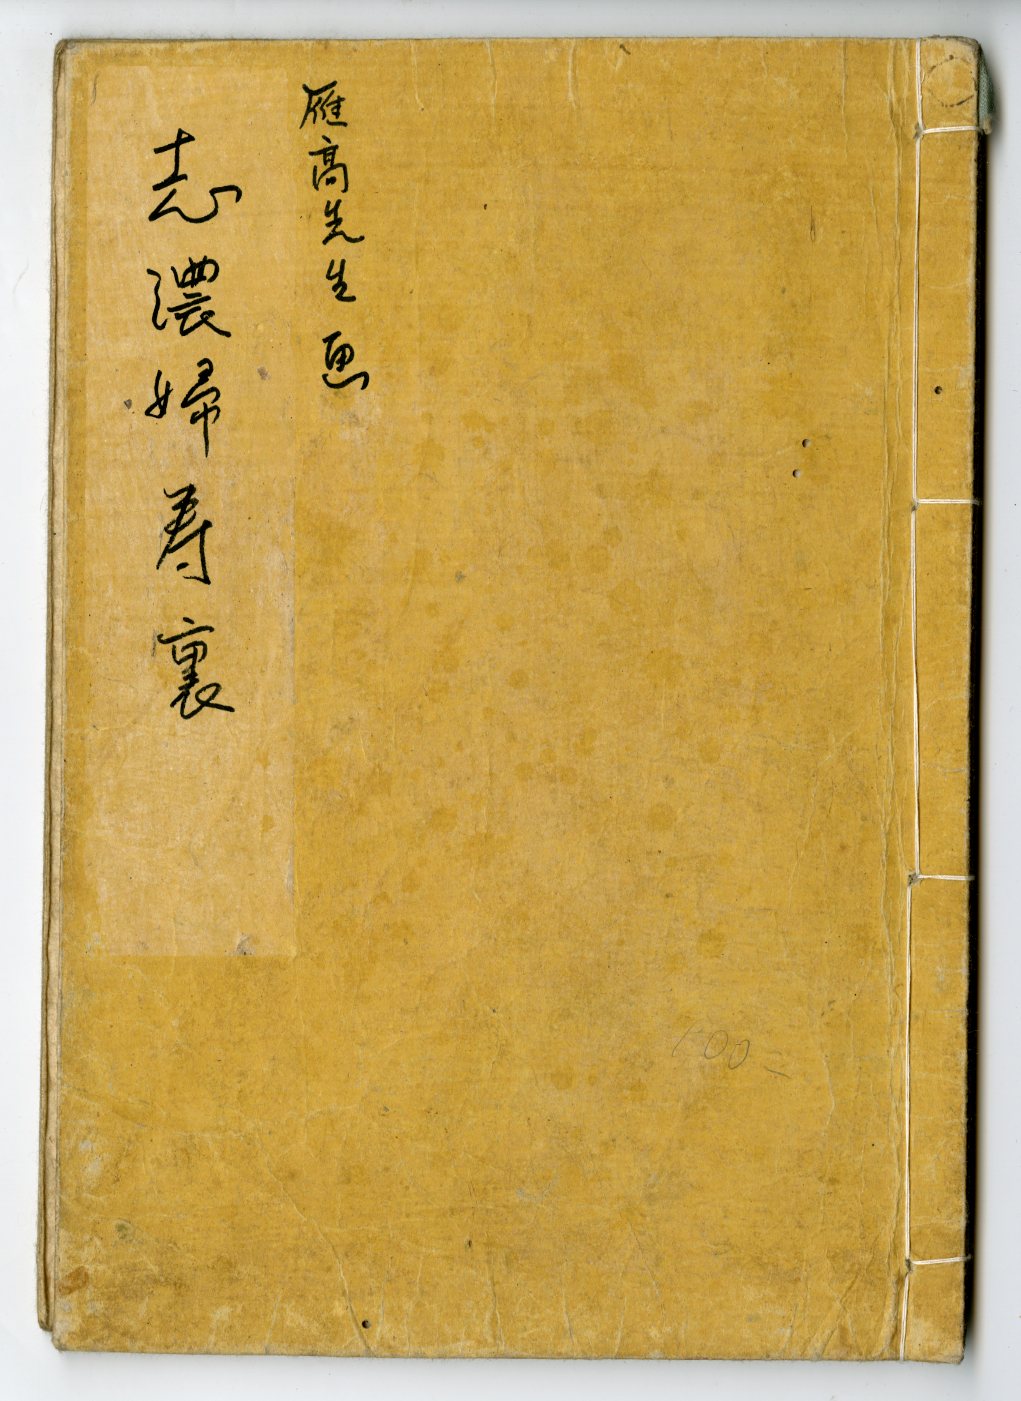 雁高先生画
志濃婦寿裏
100-